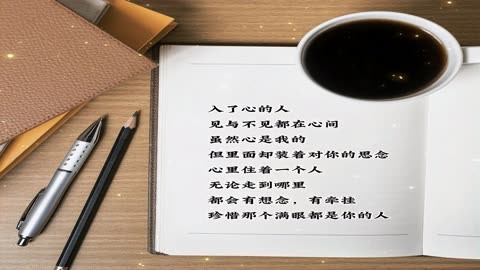 入了心的人
见与不见都在心间
虽然心是我的
但里面却装着对你的思念
心里住着一个人
无论走到哪里
都会有想念，有牵挂
珍惜那个满眼都是你的人